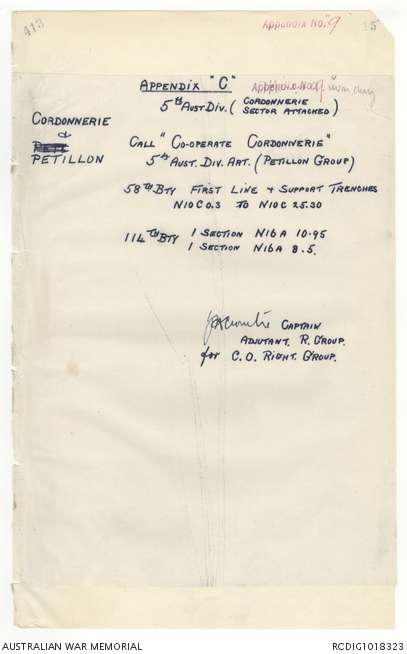 413
Appendix No. 9
15
APPENDIX "C"
5th AUST DIV. ( CORDONNERIE SECTOR ATTACHED )
CORDONNERIE
&
PETILLON
CALL "CO-OPERATE CORDONNERIE"
5th AUST. DIV. ART. (PETILLON GROUP)
58TH BTY FIRST LINE & SUPPORT TRENCHES
N10C 0.3 TO N10C 25.30
114TH BTY 1 SECTION N16A 10.95
1 SECTION N16A 8.5.
CAPTAIN
ADJUTANT. R. GROUP.
for C.O. RIGHT. GROUP.
AUSTRALIAN WAR MEMORIAL
RCDIG1018323